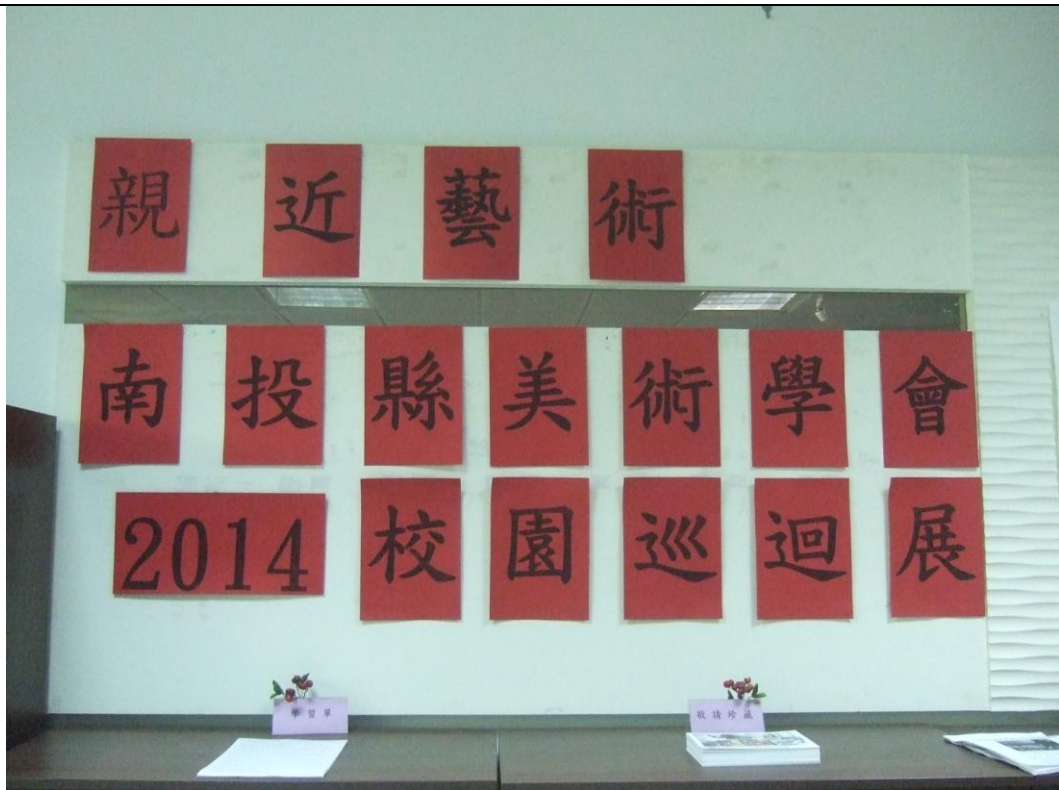 親近藝術
南投縣美術學會
2014校園巡迴展
學習單
敬請珍藏